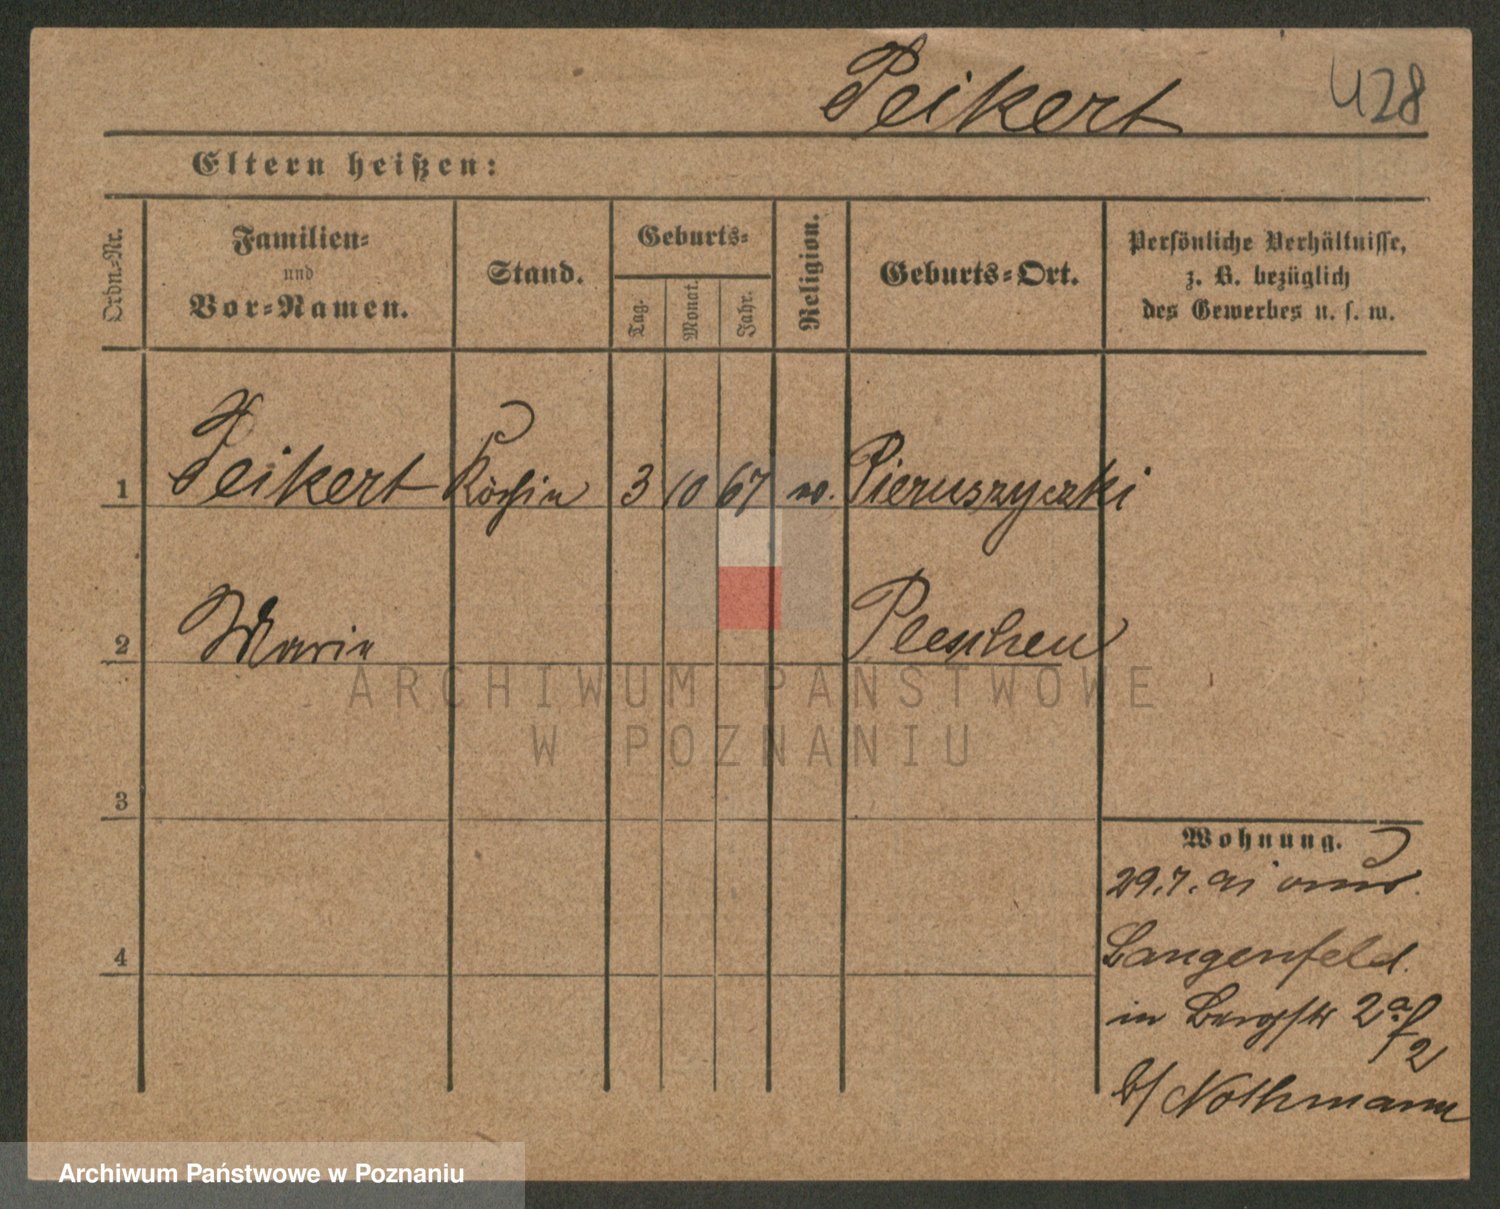 Peikert 428
Eltern heißen:
Ordn.-Nr.
Familien-
und
Vor-Namen.
Stand.
Geburts-
Tag.
Monat.
Jahr.
Religion.
Geburts-Ort.
Persönliche Verhältnisse,
z. B. bezüglich
des Gewerbes u. s. w.
1 Peikert Köchin 3 10 67 Pieruszyczki
2 Marie Pleschen
3
Wohnung.
29.7.91
4
Langenfeld.
in Bergstr 2a
b/ Nothmann
ARCHIWUM PAŃSTWOWE
W POZNANIU
Archiwum Państwowe w Poznaniu